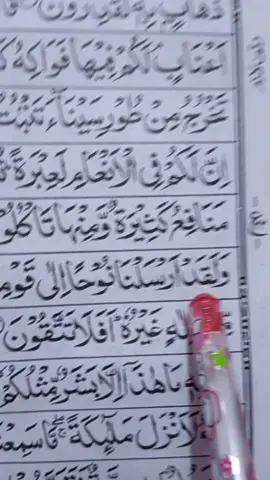 ذَهَابٍ بِهٖ لَقٰدِرُوْنَ
اَعْنَابٍ لَكُمْ فِيْهَا فَوَاكِهُ
تَخْرُجُ مِنْ طُوْرِ سَيْنَآءَ تَنْۢبُتُ
اِنَّ لَكُمْ فِي الْاَنْعَامِ لَعِبْرَةً
مَنَافِعُ كَثِيْرَةٌ وَّمِنْهَا تَاْكُلُوْ
وَلَقَدْ اَرْسَلْنَا نُوْحًا اِلٰى قَوْمِ
اِلٰهٍ غَيْرُهٗ اَفَلَا تَتَّقُوْنَ
مَا هٰذَاۤ اِلَّا بَشَرٌ مِّثْلُكُمْ
لَاَنْزَلَ مَلٰٓئِكَةً مَّا سَمِعْ